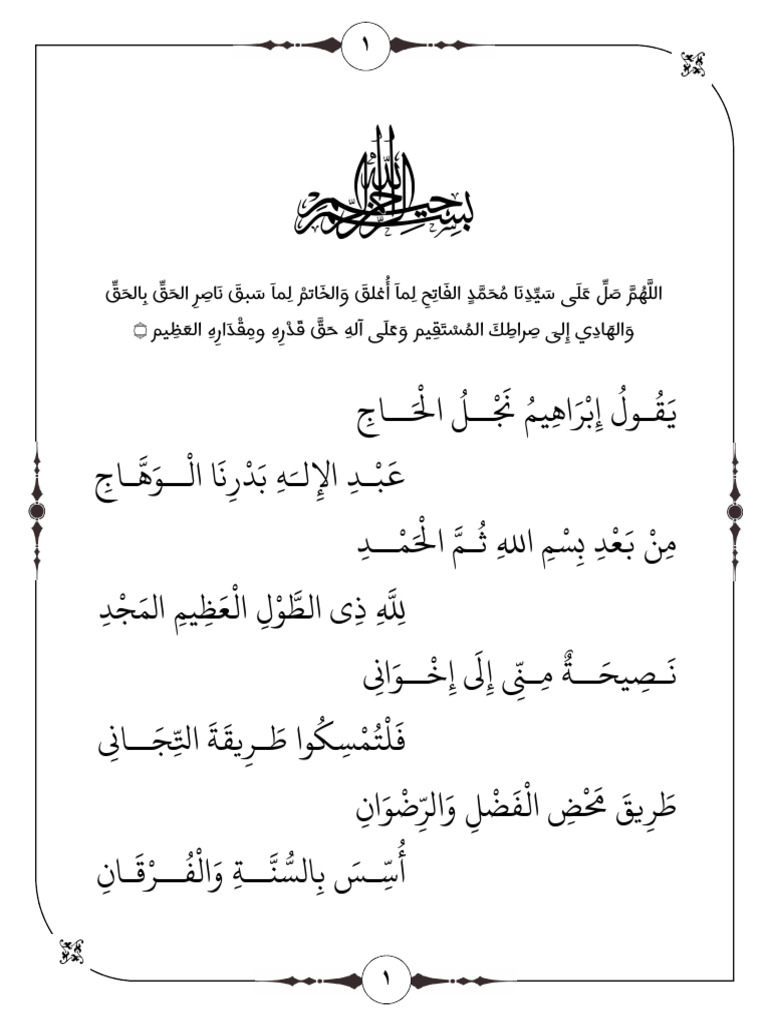 ١
بسم الله الرحمن الرحيم
اللَّهُمَّ صَلِّ عَلَى سَيِّدِنَا مُحَمَّدٍ الفَاتِحِ لِمآ أُغلقَ وَالخَاتمْ لِمآ سَبقَ نَاصِرِ الحَقِّ بِالحَقِّ
وَالهَادِي إِلىَ صِراطِكَ المُسْتَقِيم وَعَلَى آلهِ حَقَّ قَدْرِهِ ومِقْدَارِهِ العَظِيم
يَقُـولُ إِبْرَاهِيمُ نَجْـــلُ الْحَـــاجِ
عَبْـدِ الإِلـَهِ بَدْرِنَا الْـــوَهَّـاجِ
مِنْ بَعْدِ بِسْمِ اللهِ ثُـمَّ الْحَمْـــدِ
لِلَّهِ ذِى الطَّوْلِ الْعَظِيمِ المَجْدِ
نَـصِيحَـــةٌ مِـنِّى إِلَى إِخْـــوَانِى
فَلْتُمْسِكُوا طَـرِيقَةَ التِّجَـــانِى
طَرِيقَ مَحْضِ الْفَضْلِ وَالرِّضْوَانِ
أُسِّـسَ بِالسُّنَّـــةِ وَالْفُـــرْقَـانِ
١